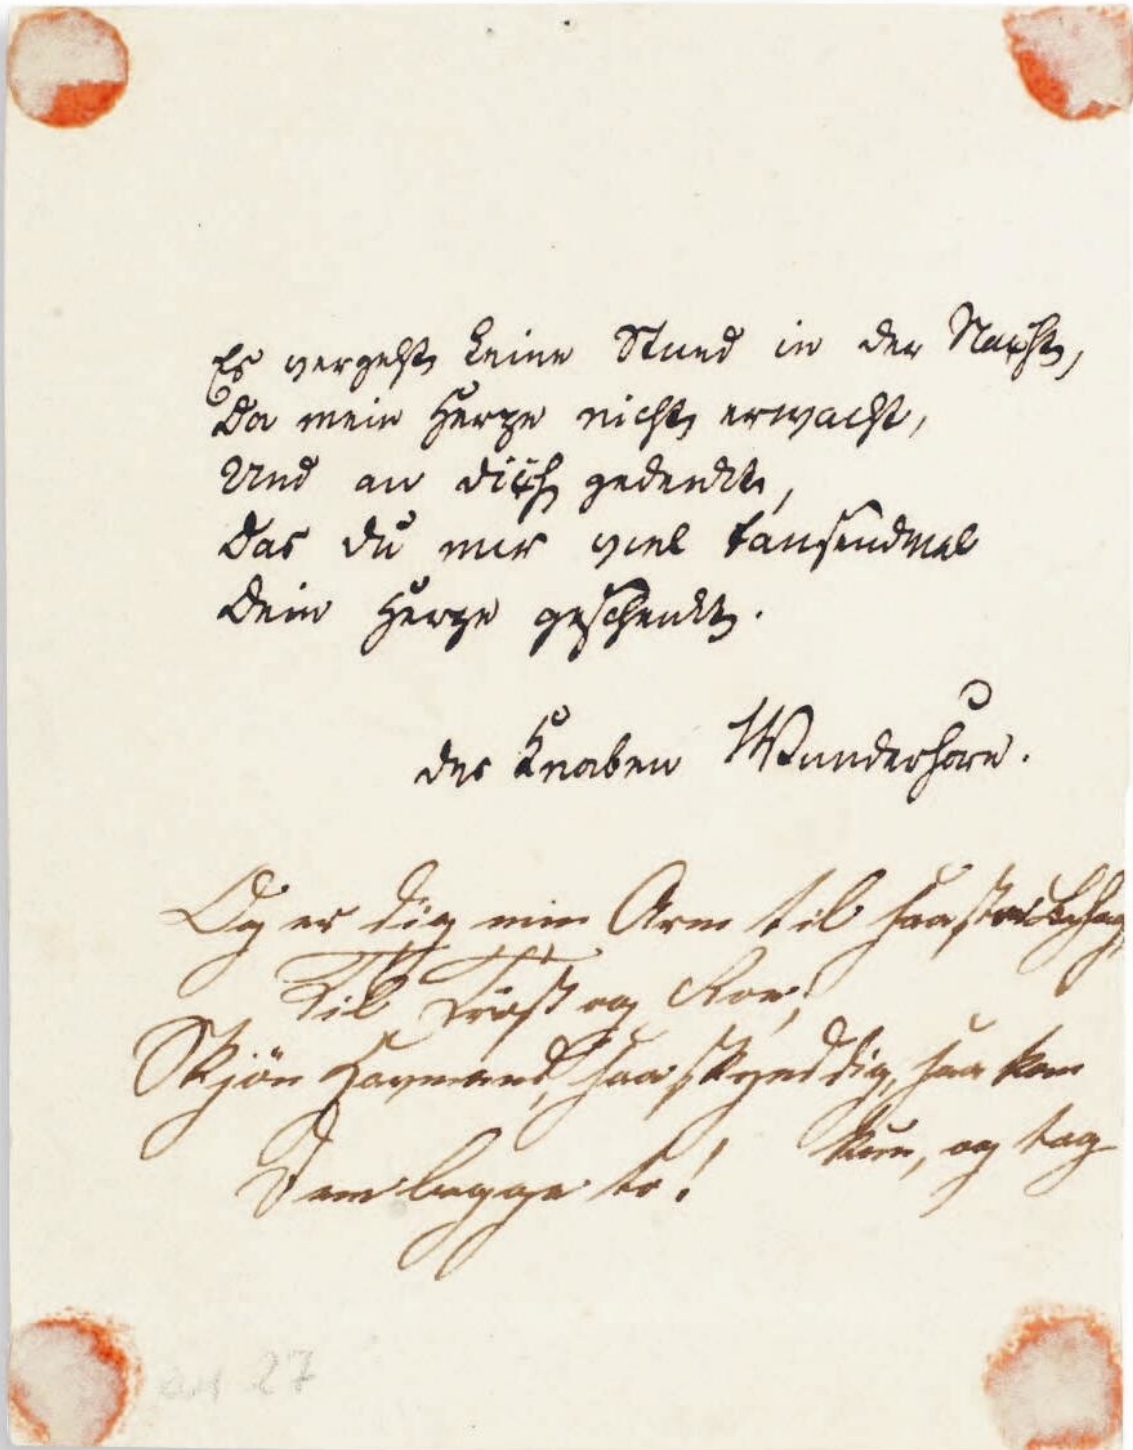 Es vergeht keine Stund in der Nacht,
Da mein Herze nicht erwacht,
Und an dich gedenckt,
Das du mir viel tausendmal
Dein Herze geschenckt.
des Knaben Wunderhorn.
Og er dig min Arm til saa stor Behag,
Til Trøst og Roe,
Skjön Havmand, saa skynd dig, saa kom
kun, og tag
Dem begge to!
27